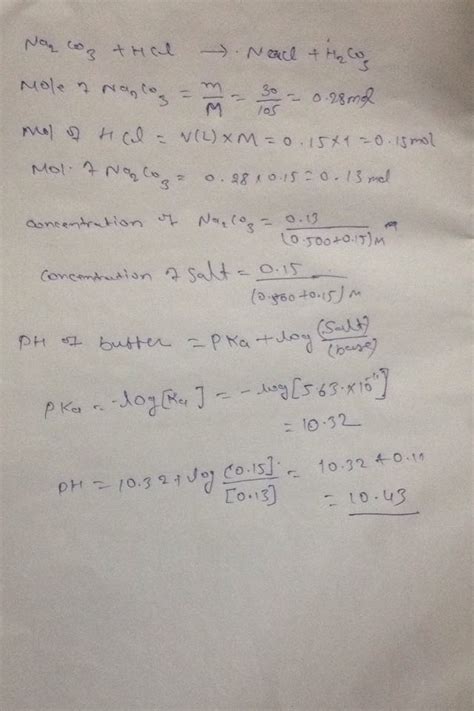 Na2CO3 + HCl → NaCl + H2CO3
Mole of Na2CO3 = m/M = 30/105 = 0.28mol
Mol of HCl = V(L) × M = 0.15×1 = 0.15mol
Mol. of Na2CO3 = 0.28 × 0.15 = 0.13 mol
concentration of Na2CO3 = 0.13/(0.500+0.15) M
concentration of salt = 0.15/(0.500+0.15) M
PH of buffer = PKa + log (Salt)/(base)
PKa = -log[Ka] = -log[5.63×10-11]
= 10.32
PH = 10.32 + log [0.15]/[0.13] = 10.32 + 0.11
= 10.43